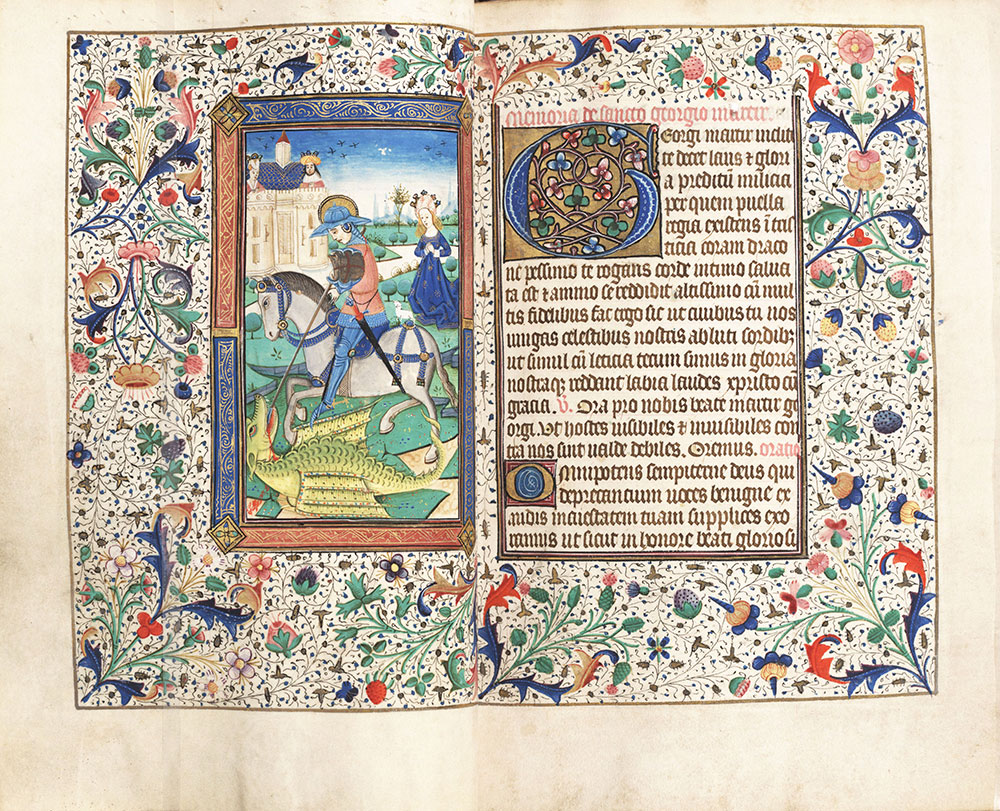 Memoria de sancto georgio martir
Georgi martir inclite
te decet laus & glori
a preditū milicia
per quem puella
regia existens ī tris
ticia coram draco
ne pessimo te rogans corde intimo salua
ta est & animo se reddidit altissimo cū mul
tis fidelibus fac ergo sic ut ciuibus tu nos
iungas celestibus nostris abluti sordib;
ut simul cū leticia tecum simus in gloria
nostraq; reddant labia laudes xpristo cū
gracia. V. Ora pro nobis beate martir ge
orgi. Vt hostes uisibiles & inuisibiles con
tra nos sint ualde debiles. Oremus. oratio
Omnipotens sempiterne deus qui
deprecantium uoces benigne ex
audis maiestatem tuam supplices exo
ramus ut sicut in honore beati glorio si